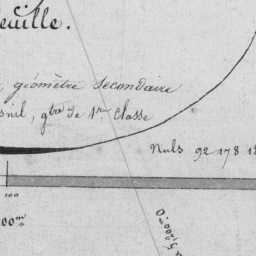 euille.
géomètre secondaire
snil, gbre de 1re Classe
Nuls 92 178 18
100
00m
à 5,000.0